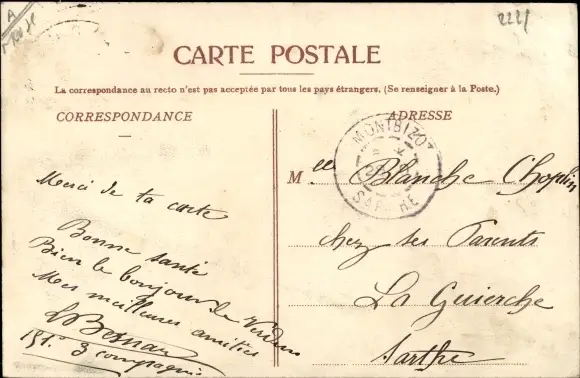 A
2221
CARTE POSTALE
La correspondance au recto n'est pas acceptée par tous les pays étrangers. (Se renseigner à la Poste.)
CORRESPONDANCE
ADRESSE
MONTBIZOT
SARTHE
Merci de ta carte
Bonne santé
Bien le bonjour de Verdun
Mes meilleures amitiés
3 compagnie
Melle Blanche Choplin
chez ses Parents
La Guierche
Sarthe